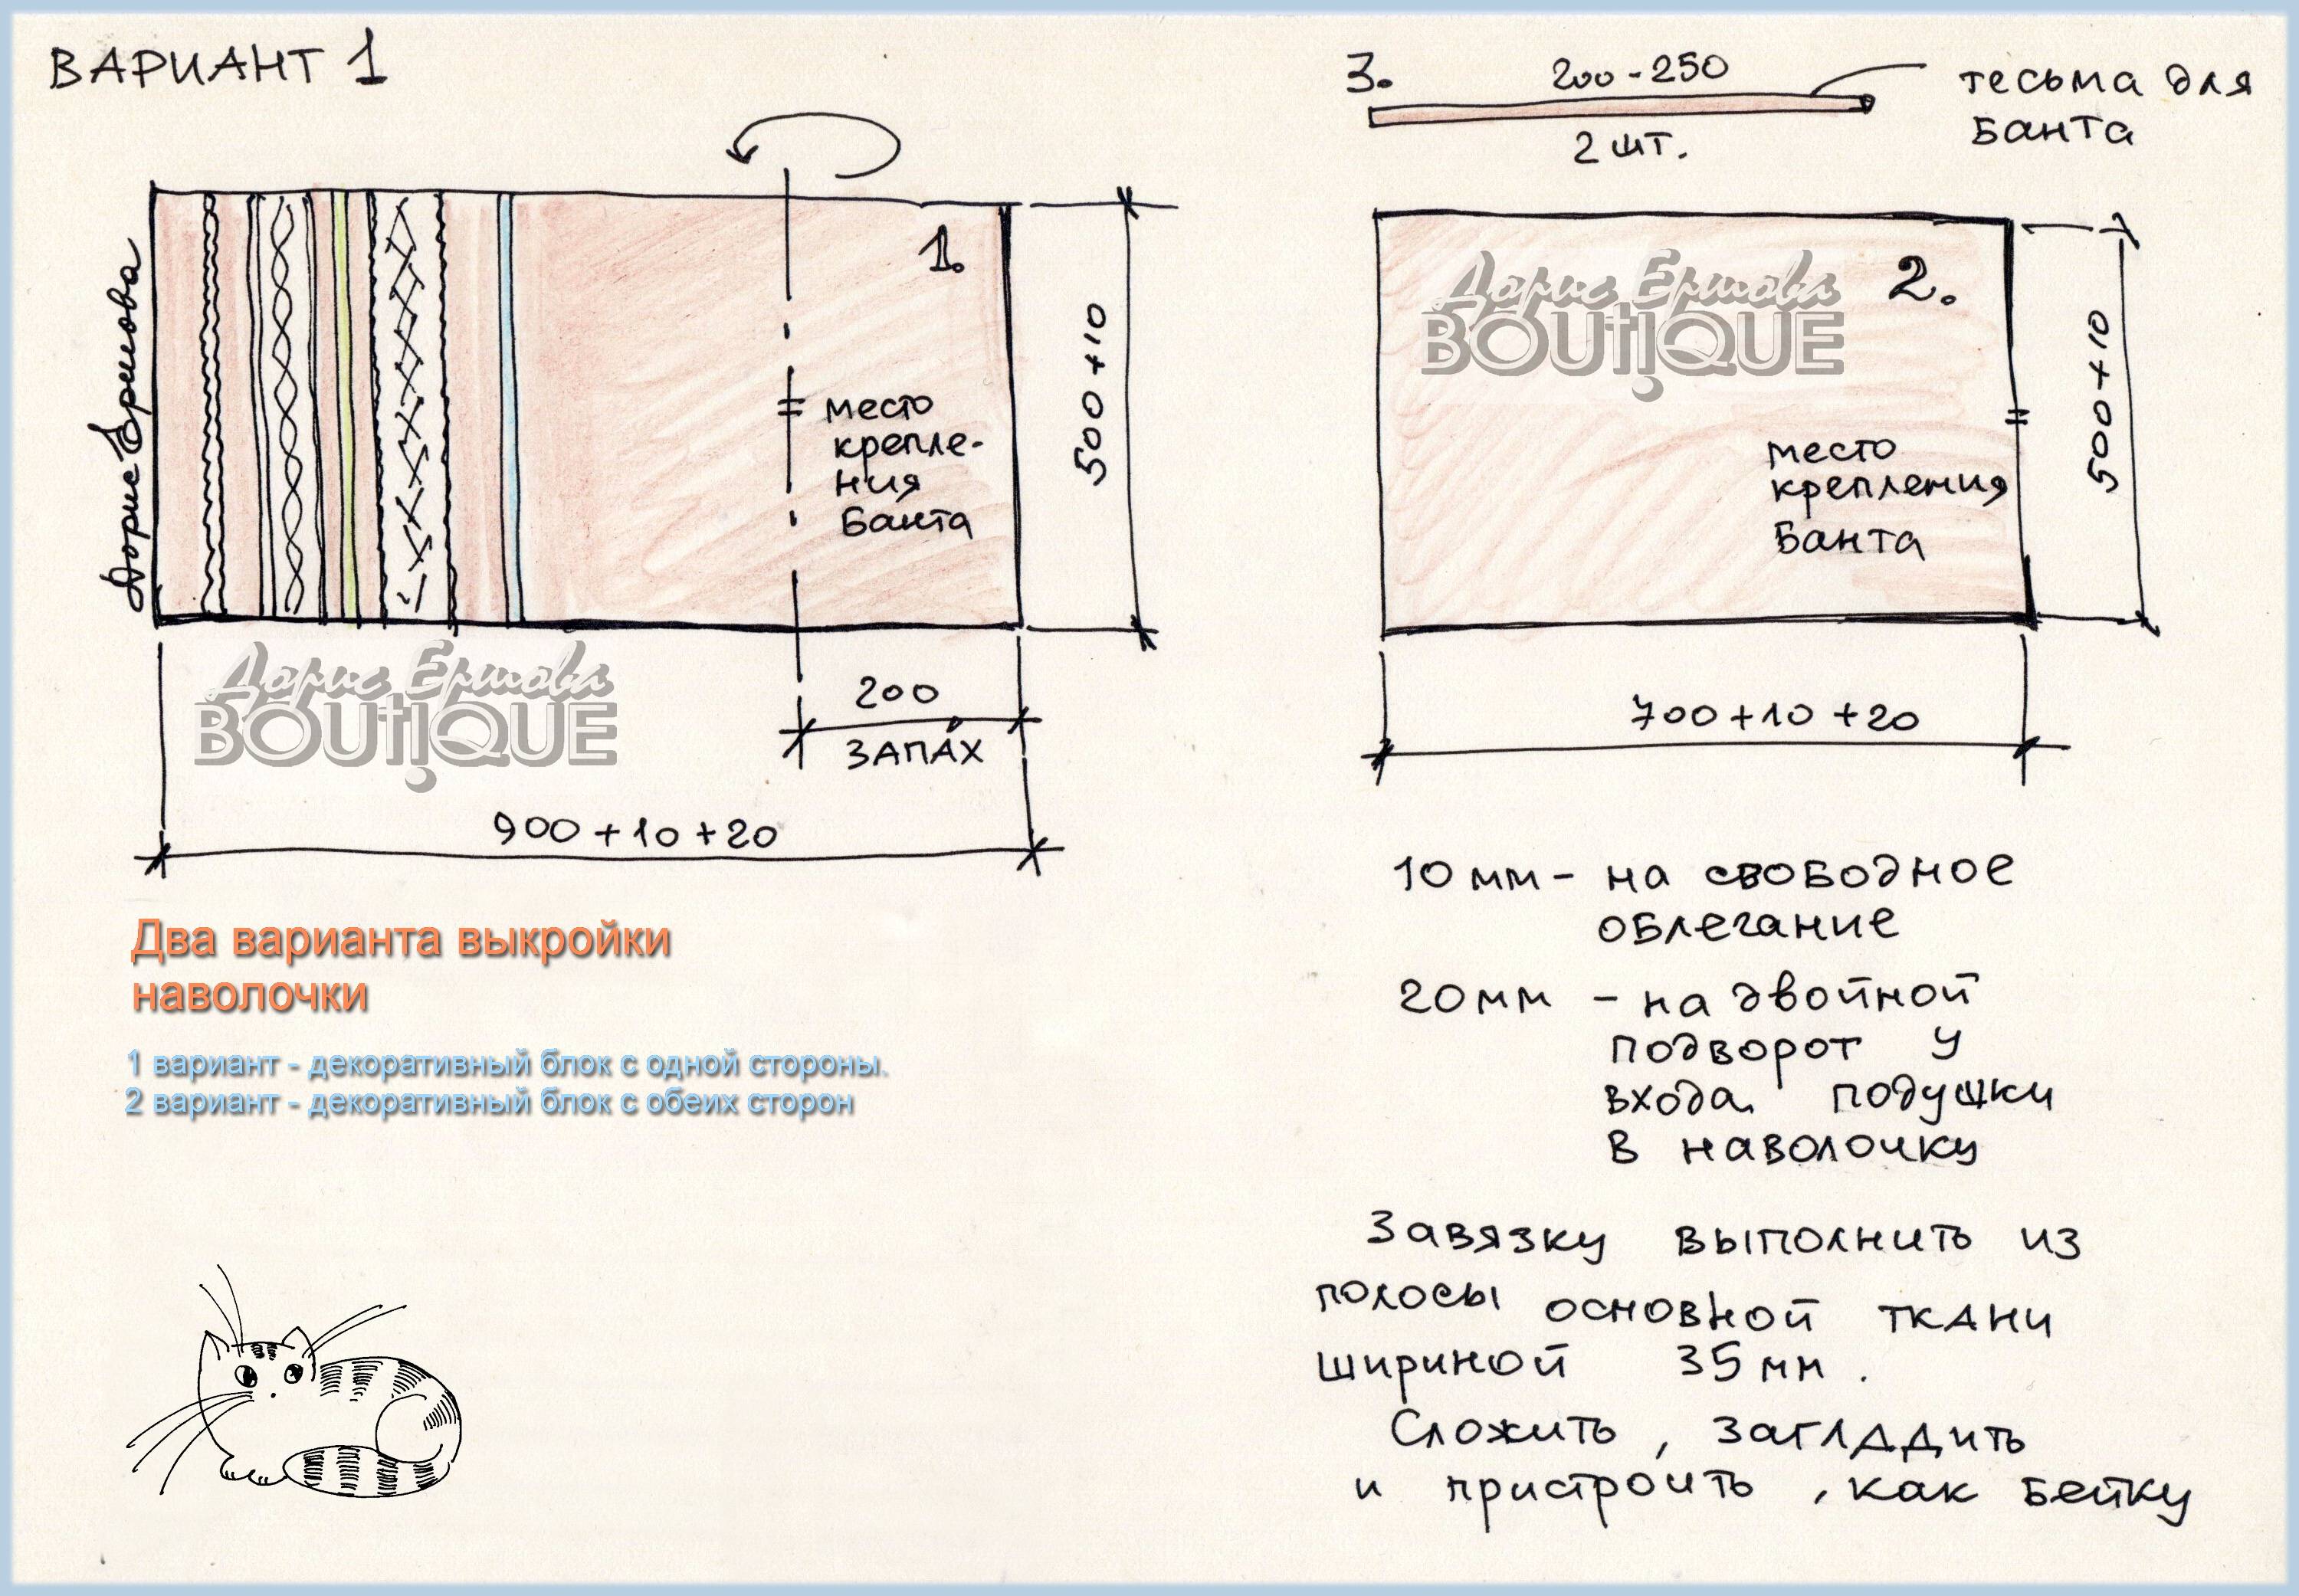 ВАРИАНТ 1
Дорис Ермова
1.
место
крепле-
ния
Банта
500+10
200
ЗАПАХ
900+10+20
Дорис Ермова
BOUTIQUE
Два варианта выкройки
наволочки
1 вариант - декоративный блок с одной стороны.
2 вариант - декоративный блок с обеих сторон
3.
200-250
2 шт.
тесьма для
Банта
Дорис Ермова
BOUTIQUE
2.
место
крепления
Банта
500+10
700+10+20
10 мм - на свободное
облегание
20 мм - на двойной
подворот у
входа подушки
в наволочку
Завязку выполнить из
полосы основной ткани
шириной 35 мм.
Сложить, загладить
и пристроить, как бейку